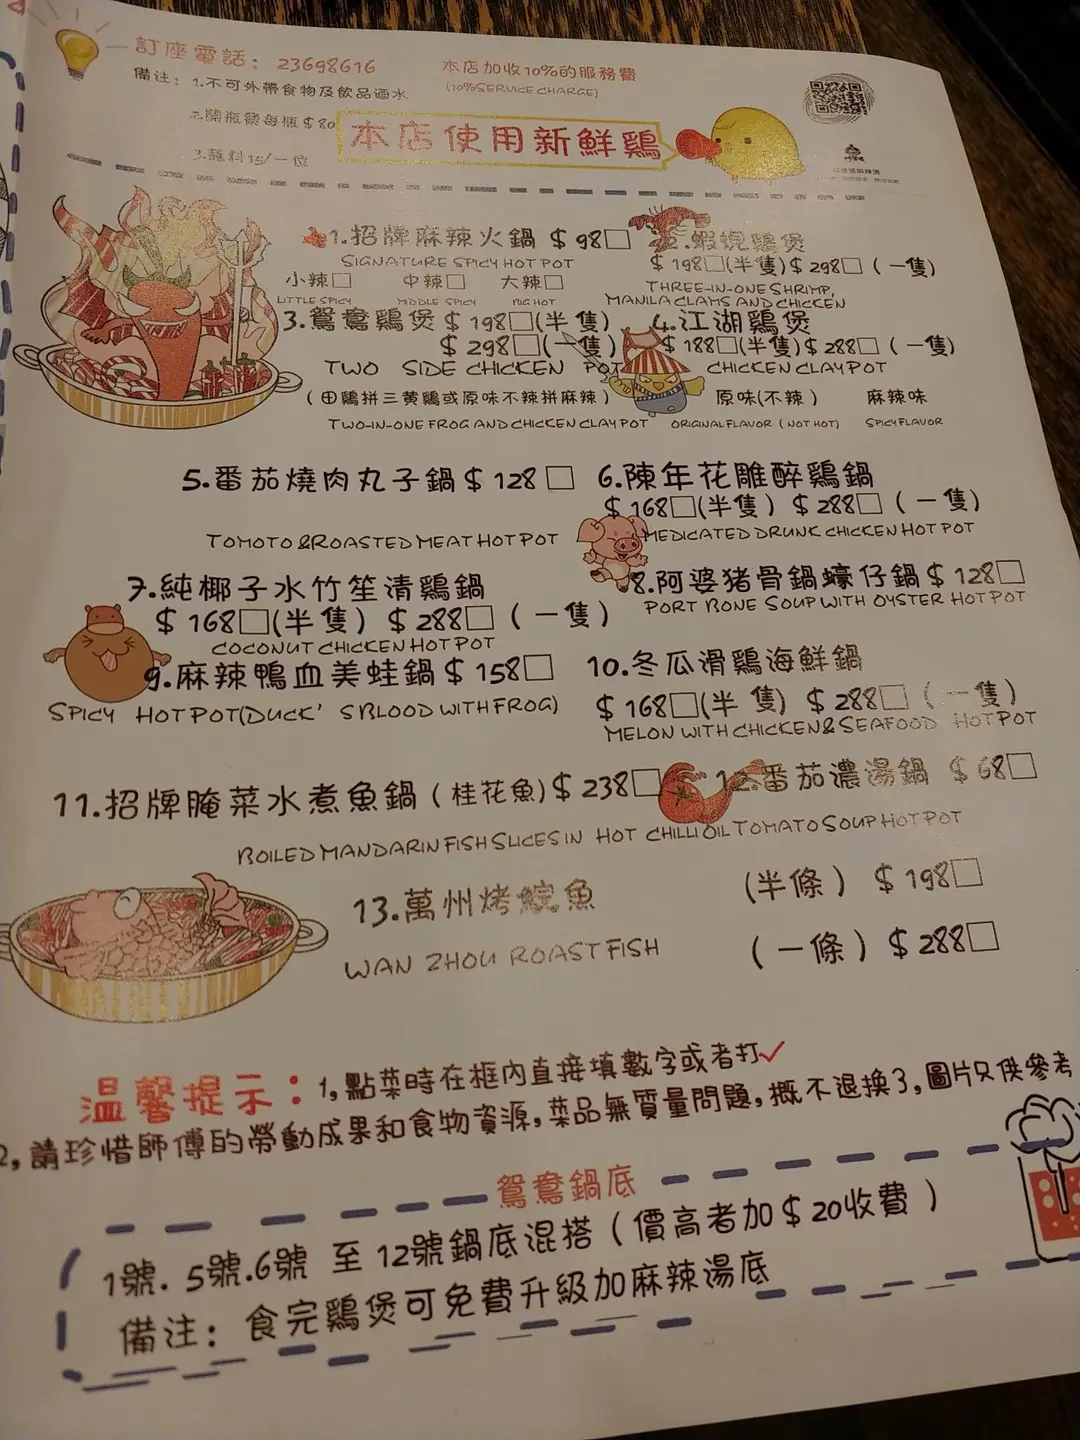 訂座電話：23698616
本店加收10%的服務費
(10%SERVICE CHARGE)
備注：1.不可外帶食物及飲品酒水
2.開瓶費每瓶$80
3.醬料15/一位
本店使用新鮮鷄
1.招牌麻辣火鍋 $98□
SIGNATURE SPICY HOT POT
小辣□ 中辣□ 大辣□
LITTLE SPICY MIDDLE SPICY BIG HOT
2.蝦蜆鷄煲
$198□(半隻)$298□(一隻)
THREE-IN-ONE SHRIMP,
MANILA CLAMS AND CHICKEN
3.鴛鴦鷄煲 $198□(半隻)
$298□(一隻)
TWO SIDE CHICKEN POT
(田鷄拼三黄鷄或原味不辣拼麻辣)
TWO-IN-ONE FROG AND CHICKEN CLAY POT
4.江湖鷄煲
$188□(半隻)$288□(一隻)
CHICKEN CLAY POT
原味(不辣) 麻辣味
ORIGINAL FLAVOR (NOT HOT) SPICY FLAVOR
5.番茄燒肉丸子鍋 $128□
TOMOTO &ROASTED MEAT HOT POT
6.陳年花雕醉鷄鍋
$168□(半隻) $288□(一隻)
MEDICATED DRUNK CHICKEN HOT POT
7.純椰子水竹笙清鷄鍋
$168□(半隻) $288□(一隻)
COCONUT CHICKEN HOT POT
8.阿婆猪骨鍋蠔仔鍋 $128□
PORT BONE SOUP WITH OYSTER HOT POT
9.麻辣鴨血美蛙鍋 $158□
SPICY HOT POT(DUCK' S BLOOD WITH FROG)
10.冬瓜滑鷄海鮮鍋
$168□(半隻) $288□(一隻)
MELON WITH CHICKEN&SEAFOOD HOT POT
11.招牌腌菜水煮魚鍋(桂花魚)$238□
BOILED MANDARIN FISH SLICES IN HOT CHILLI OIL
12.番茄濃湯鍋 $68□
TOMATO SOUP HOT POT
13.萬州烤鯇魚
WAN ZHOU ROAST FISH
(半條) $198□
(一條) $288□
温馨提示：1,點菜時在框內直接填數字或者打✓
2,請珍惜師傅的勞動成果和食物資源,菜品無質量問題,概不退換3,圖片只供參考
鴛鴦鍋底
1號.5號.6號 至 12號鍋底混搭(價高者加$20收費)
備注：食完鷄煲可免費升級加麻辣湯底